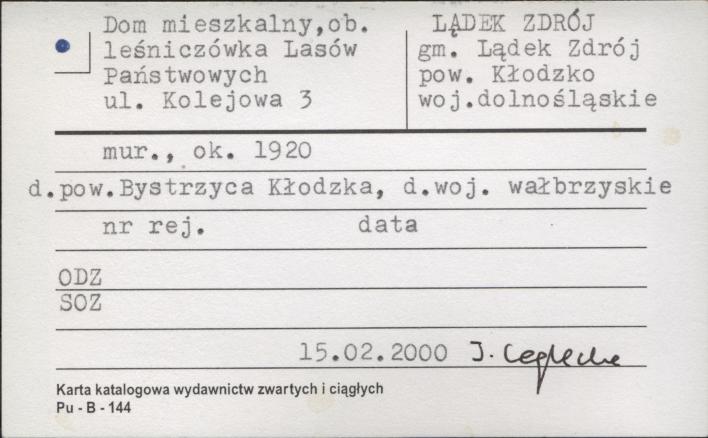 Dom mieszkalny,ob.
leśniczówka Lasów
Państwowych
ul. Kolejowa 3
LĄDEK ZDRÓJ
gm. Lądek Zdrój
pow. Kłodzko
woj.dolnośląskie
mur., ok. 1920
d.pow.Bystrzyca Kłodzka, d.woj. wałbrzyskie
nr rej. data
ODZ
SOZ
15.02.2000 J.
Karta katalogowa wydawnictw zwartych i ciągłych
Pu - B - 144